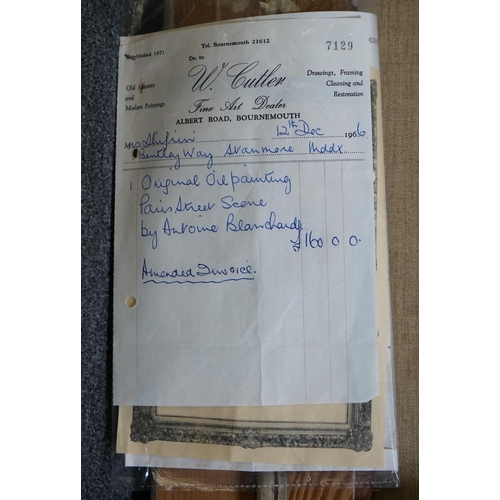 Tel. Bournemouth 22612
Established 1931
Dr. to
7129
W. Cutler
Old Masters
and
Modern Paintings
Drawings, Framing
Cleaning and
Restoration
Fine Art Dealer
ALBERT ROAD, BOURNEMOUTH
Mrs Shifrin 12th Dec 1966
Bentley Way Stanmore Mddx
1 Original Oil painting
Paris Street Scene
by Antoine Blanchard
£160 0 0.
Amended Invoice.